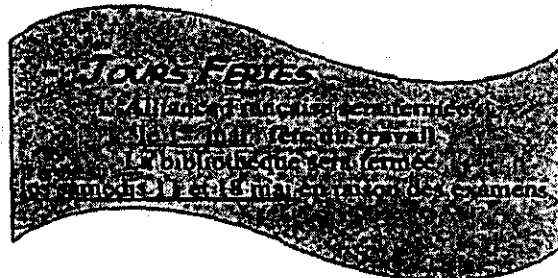 JOURS FERIES
L'Alliance Française sera fermée
le 1er mai : fête du travail
La bibliothèque sera fermée
les samedis 11 et 18 mai en raison des examens